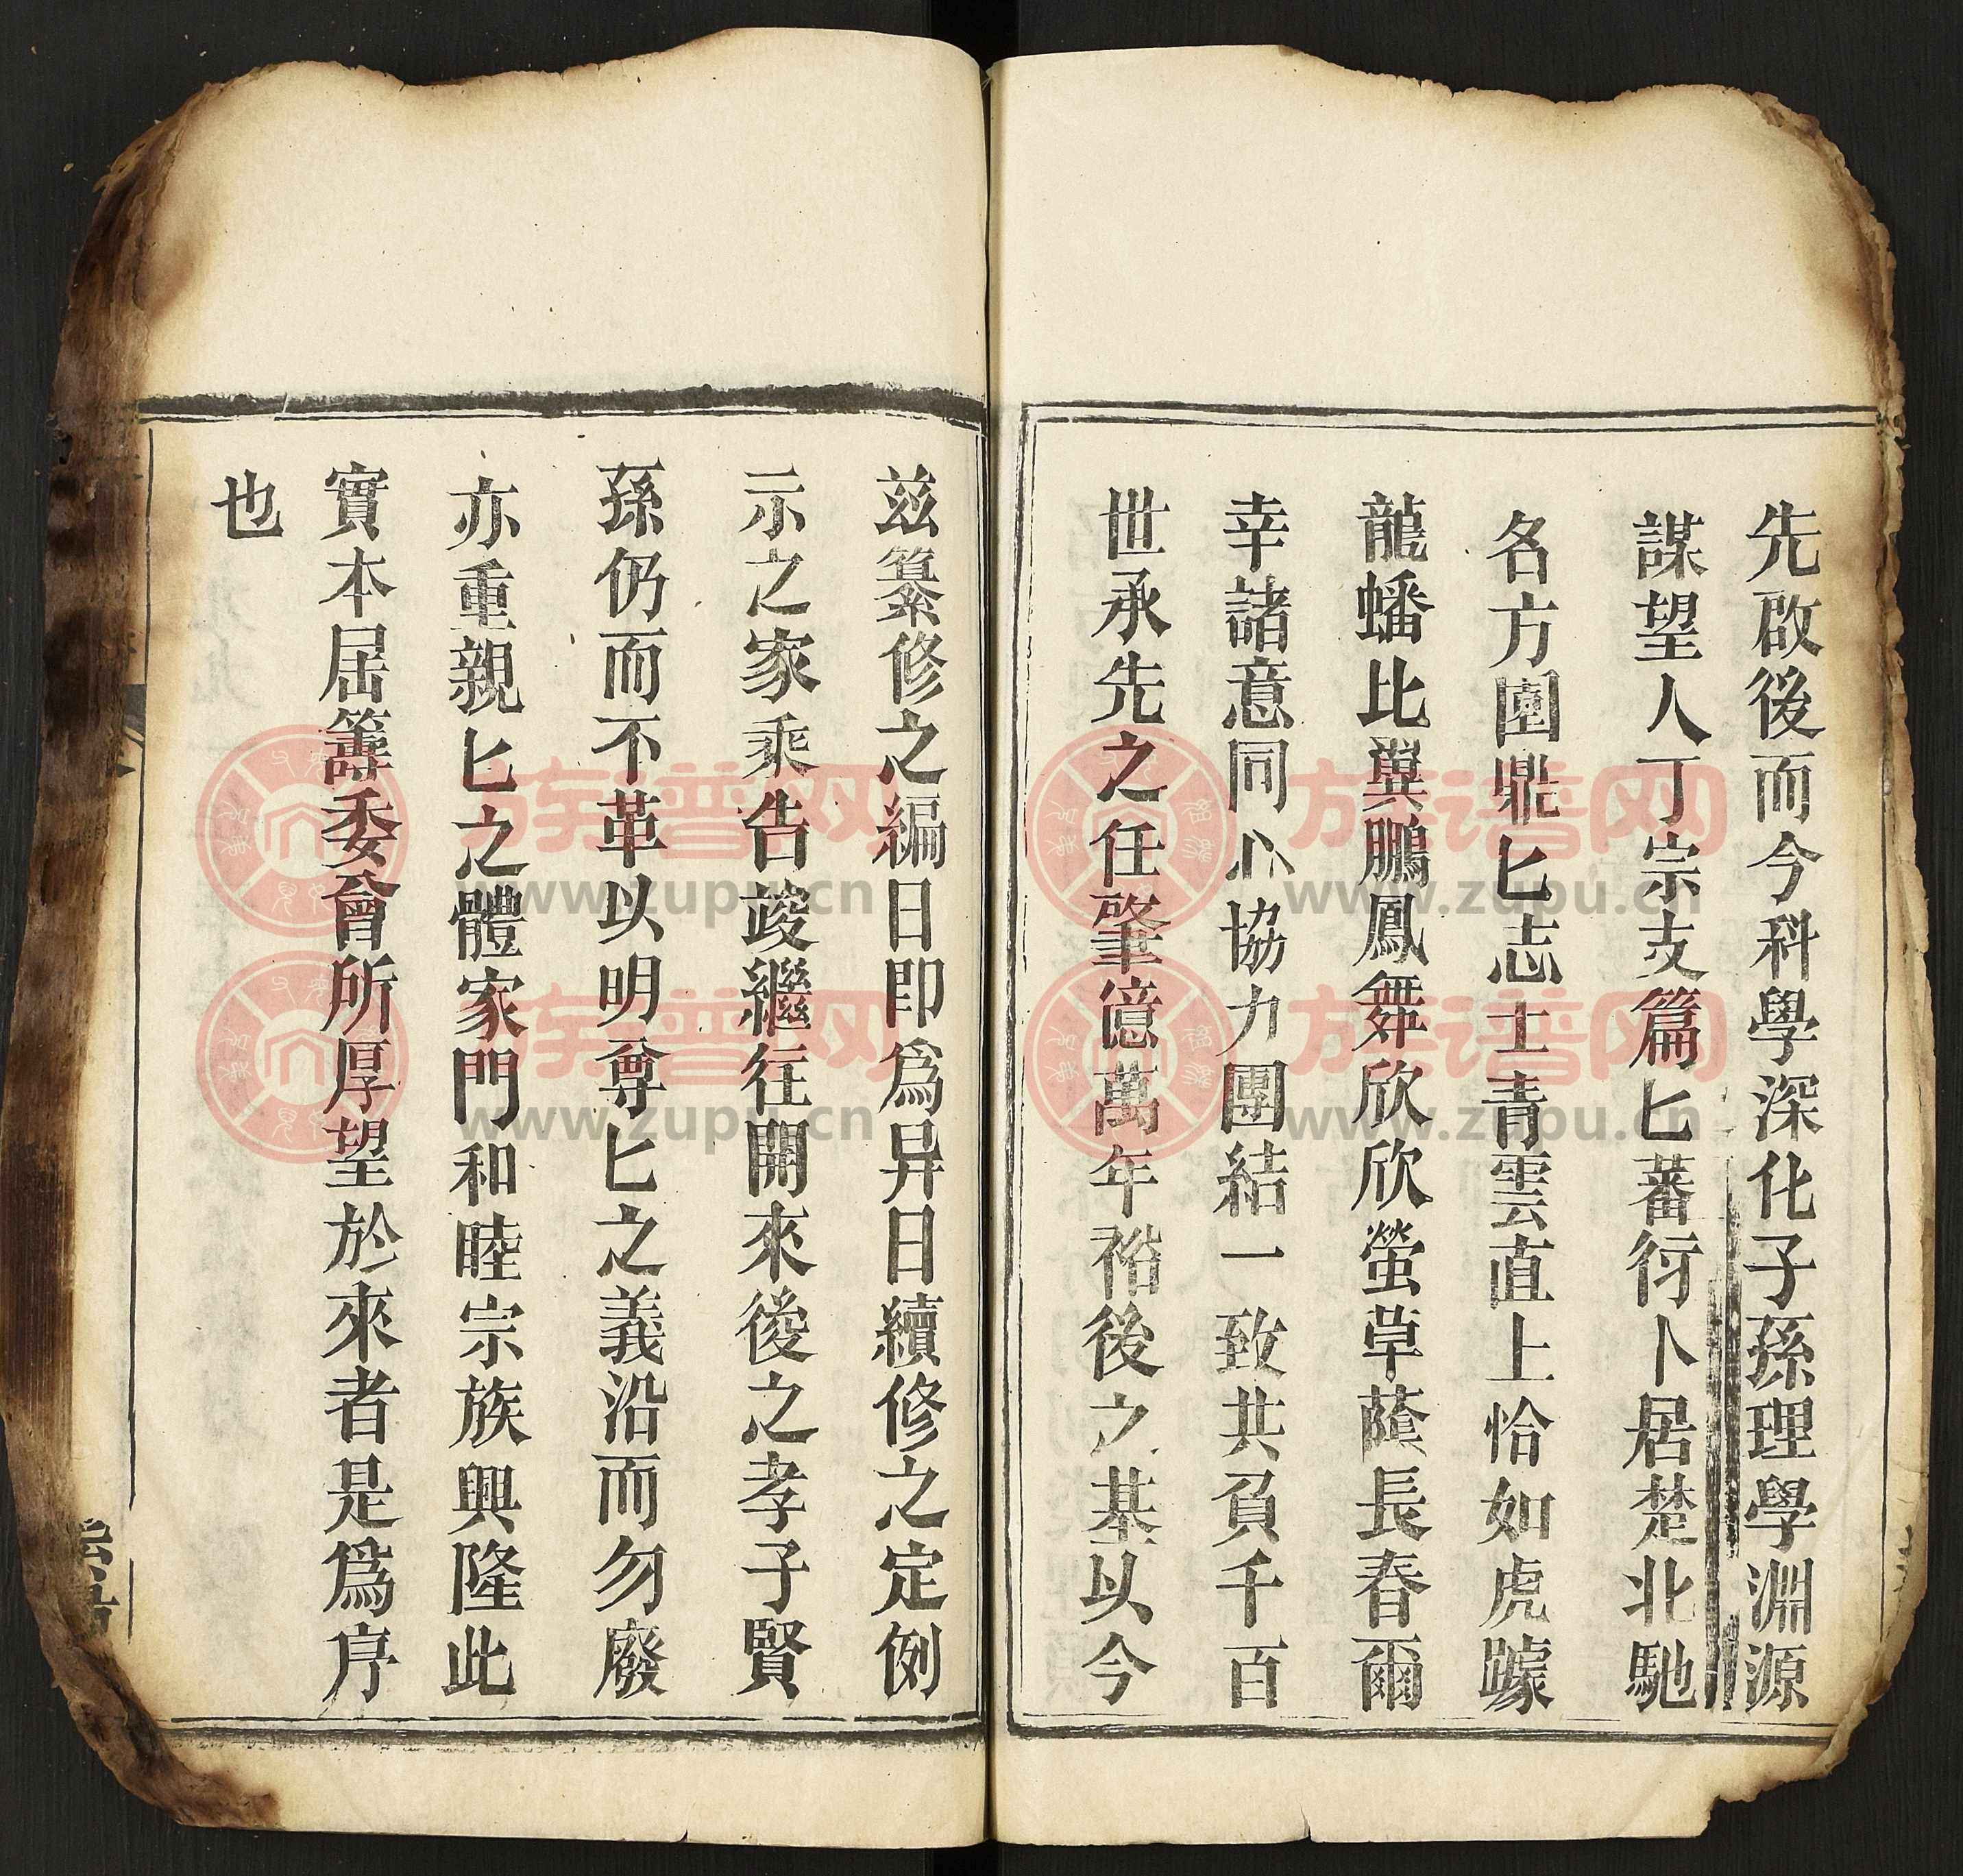 先啟後而今科學深化子孫理學淵源
謀望人丁宗支篇匕蕃衍卜居楚北馳
名方園鼎匕志士青雲直上恰如虎㠓
龍蟠比翼鵬鳳舞欣欣螢草蔭長春爾
幸諸意同心協力團結一致共負千百
世承先之任肇億萬年裕後之基以今
茲纂修之編日即爲异日續修之定例
示之家乘告竣繼往開來後之孝子賢
孫仍而不革以明尊匕之義沿而勿廢
亦重親匕之體家門和睦宗族興隆此
實本屆籌委會所厚望於來者是爲序
也
族谱网
www.zupu.cn
族谱网
www.zupu.cn
族谱网
www.zupu.cn
族谱网
www.zupu.cn